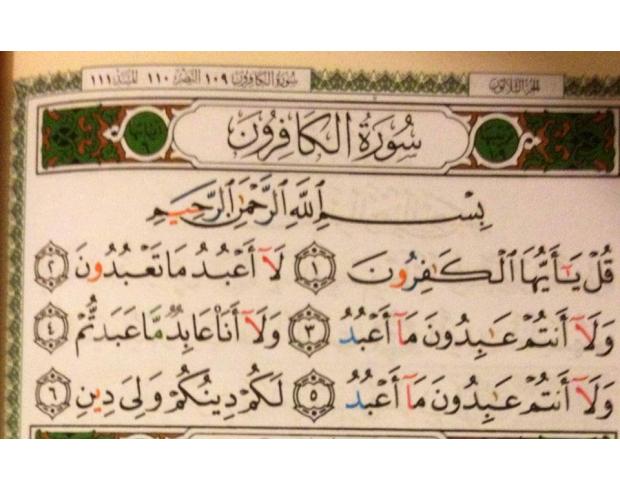 الجزء الثلاثون
سورة الكافرون ١٠٩ النصر ١١٠ المسد ١١١
سُورَةُ الكَافِرُونَ
بِسْمِ ٱللَّهِ ٱلرَّحْمَٰنِ ٱلرَّحِيمِ
قُلْ يَٰٓأَيُّهَا ٱلْكَٰفِرُونَ ١ لَآ أَعْبُدُ مَا تَعْبُدُونَ ٢
وَلَآ أَنتُمْ عَٰبِدُونَ مَآ أَعْبُدُ ٣ وَلَآ أَنَا۠ عَابِدٌ مَّا عَبَدتُّمْ ٤
وَلَآ أَنتُمْ عَٰبِدُونَ مَآ أَعْبُدُ ٥ لَكُمْ دِينُكُمْ وَلِىَ دِينِ ٦